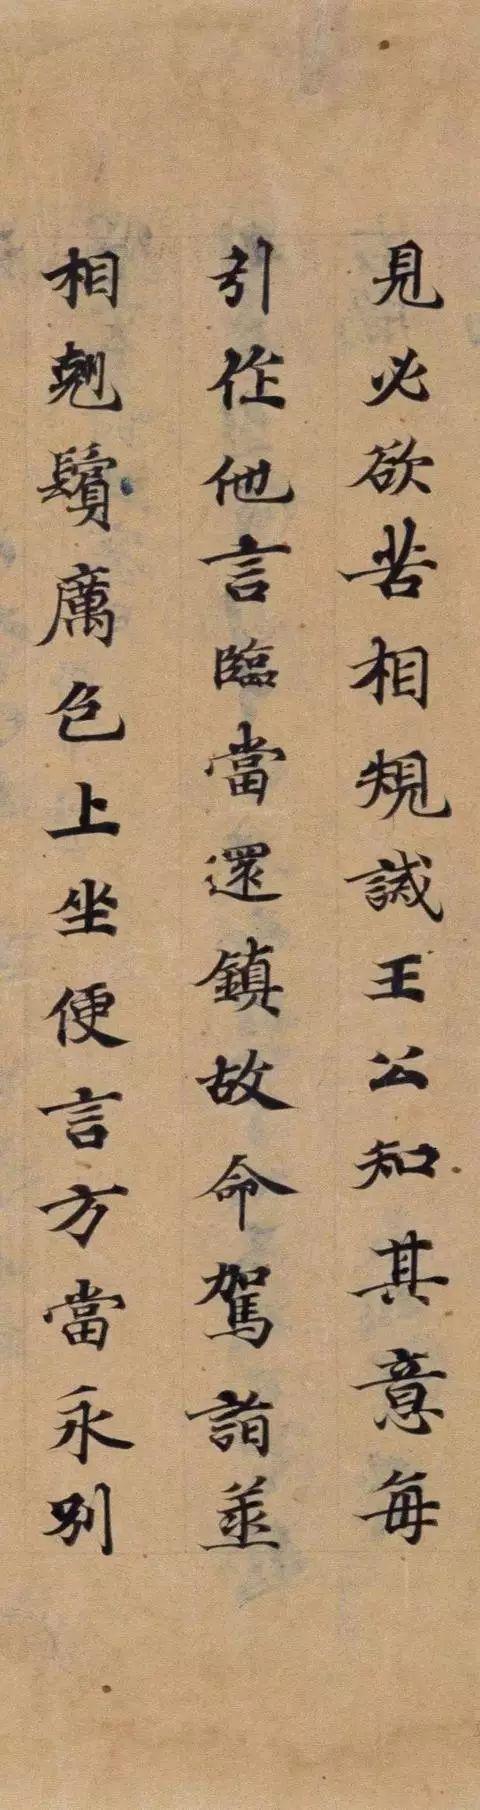 見必欲苦相規誡王公知其意每
引作他言臨當還鎮故命駕詣丞
相翹鬚厲色上坐便言方當永別